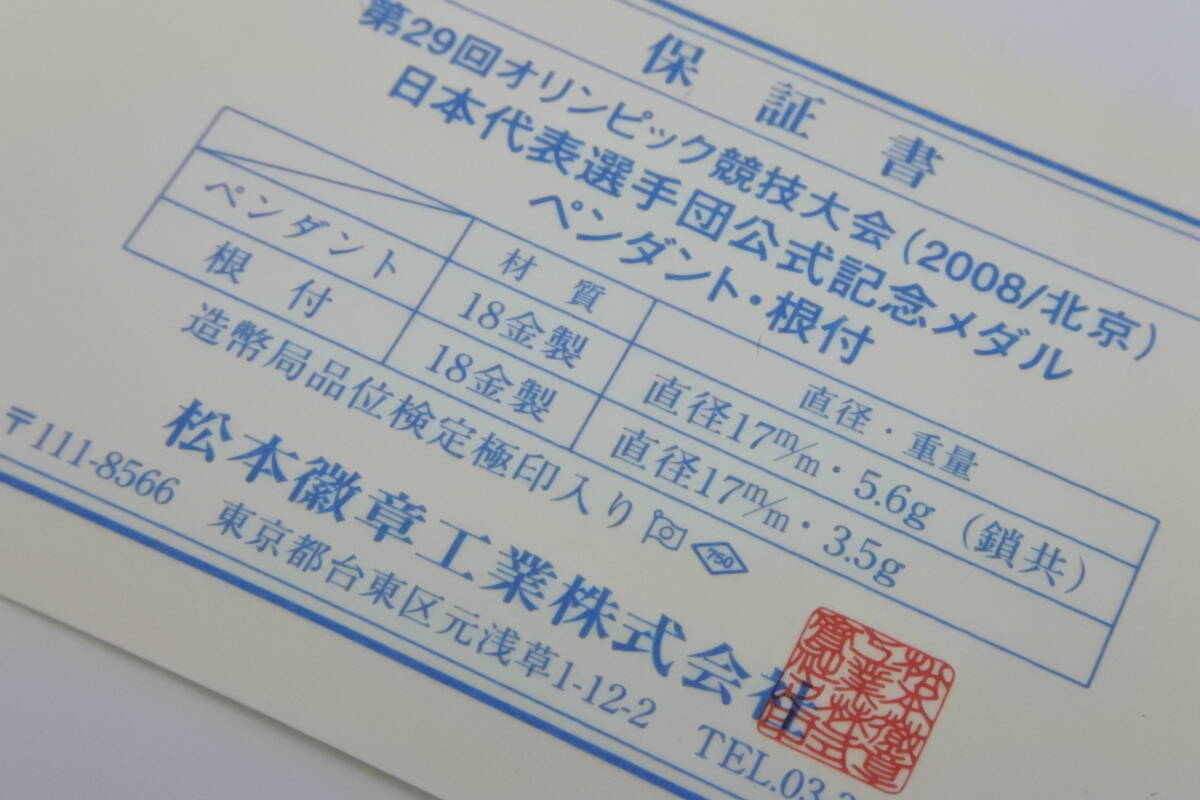 保証書
第29回オリンピック競技大会(2008/北京)
日本代表選手団公式記念メダル
ペンダント・根付
材質 直径・重量
ペンダント 18金製 直径17m/m・5.6g(鎖共)
根付 18金製 直径17m/m・3.5g
造幣局品位検定極印入り 750
松本徽章工業株式会社
〒111-8566 東京都台東区元浅草1-12-2 TEL.03